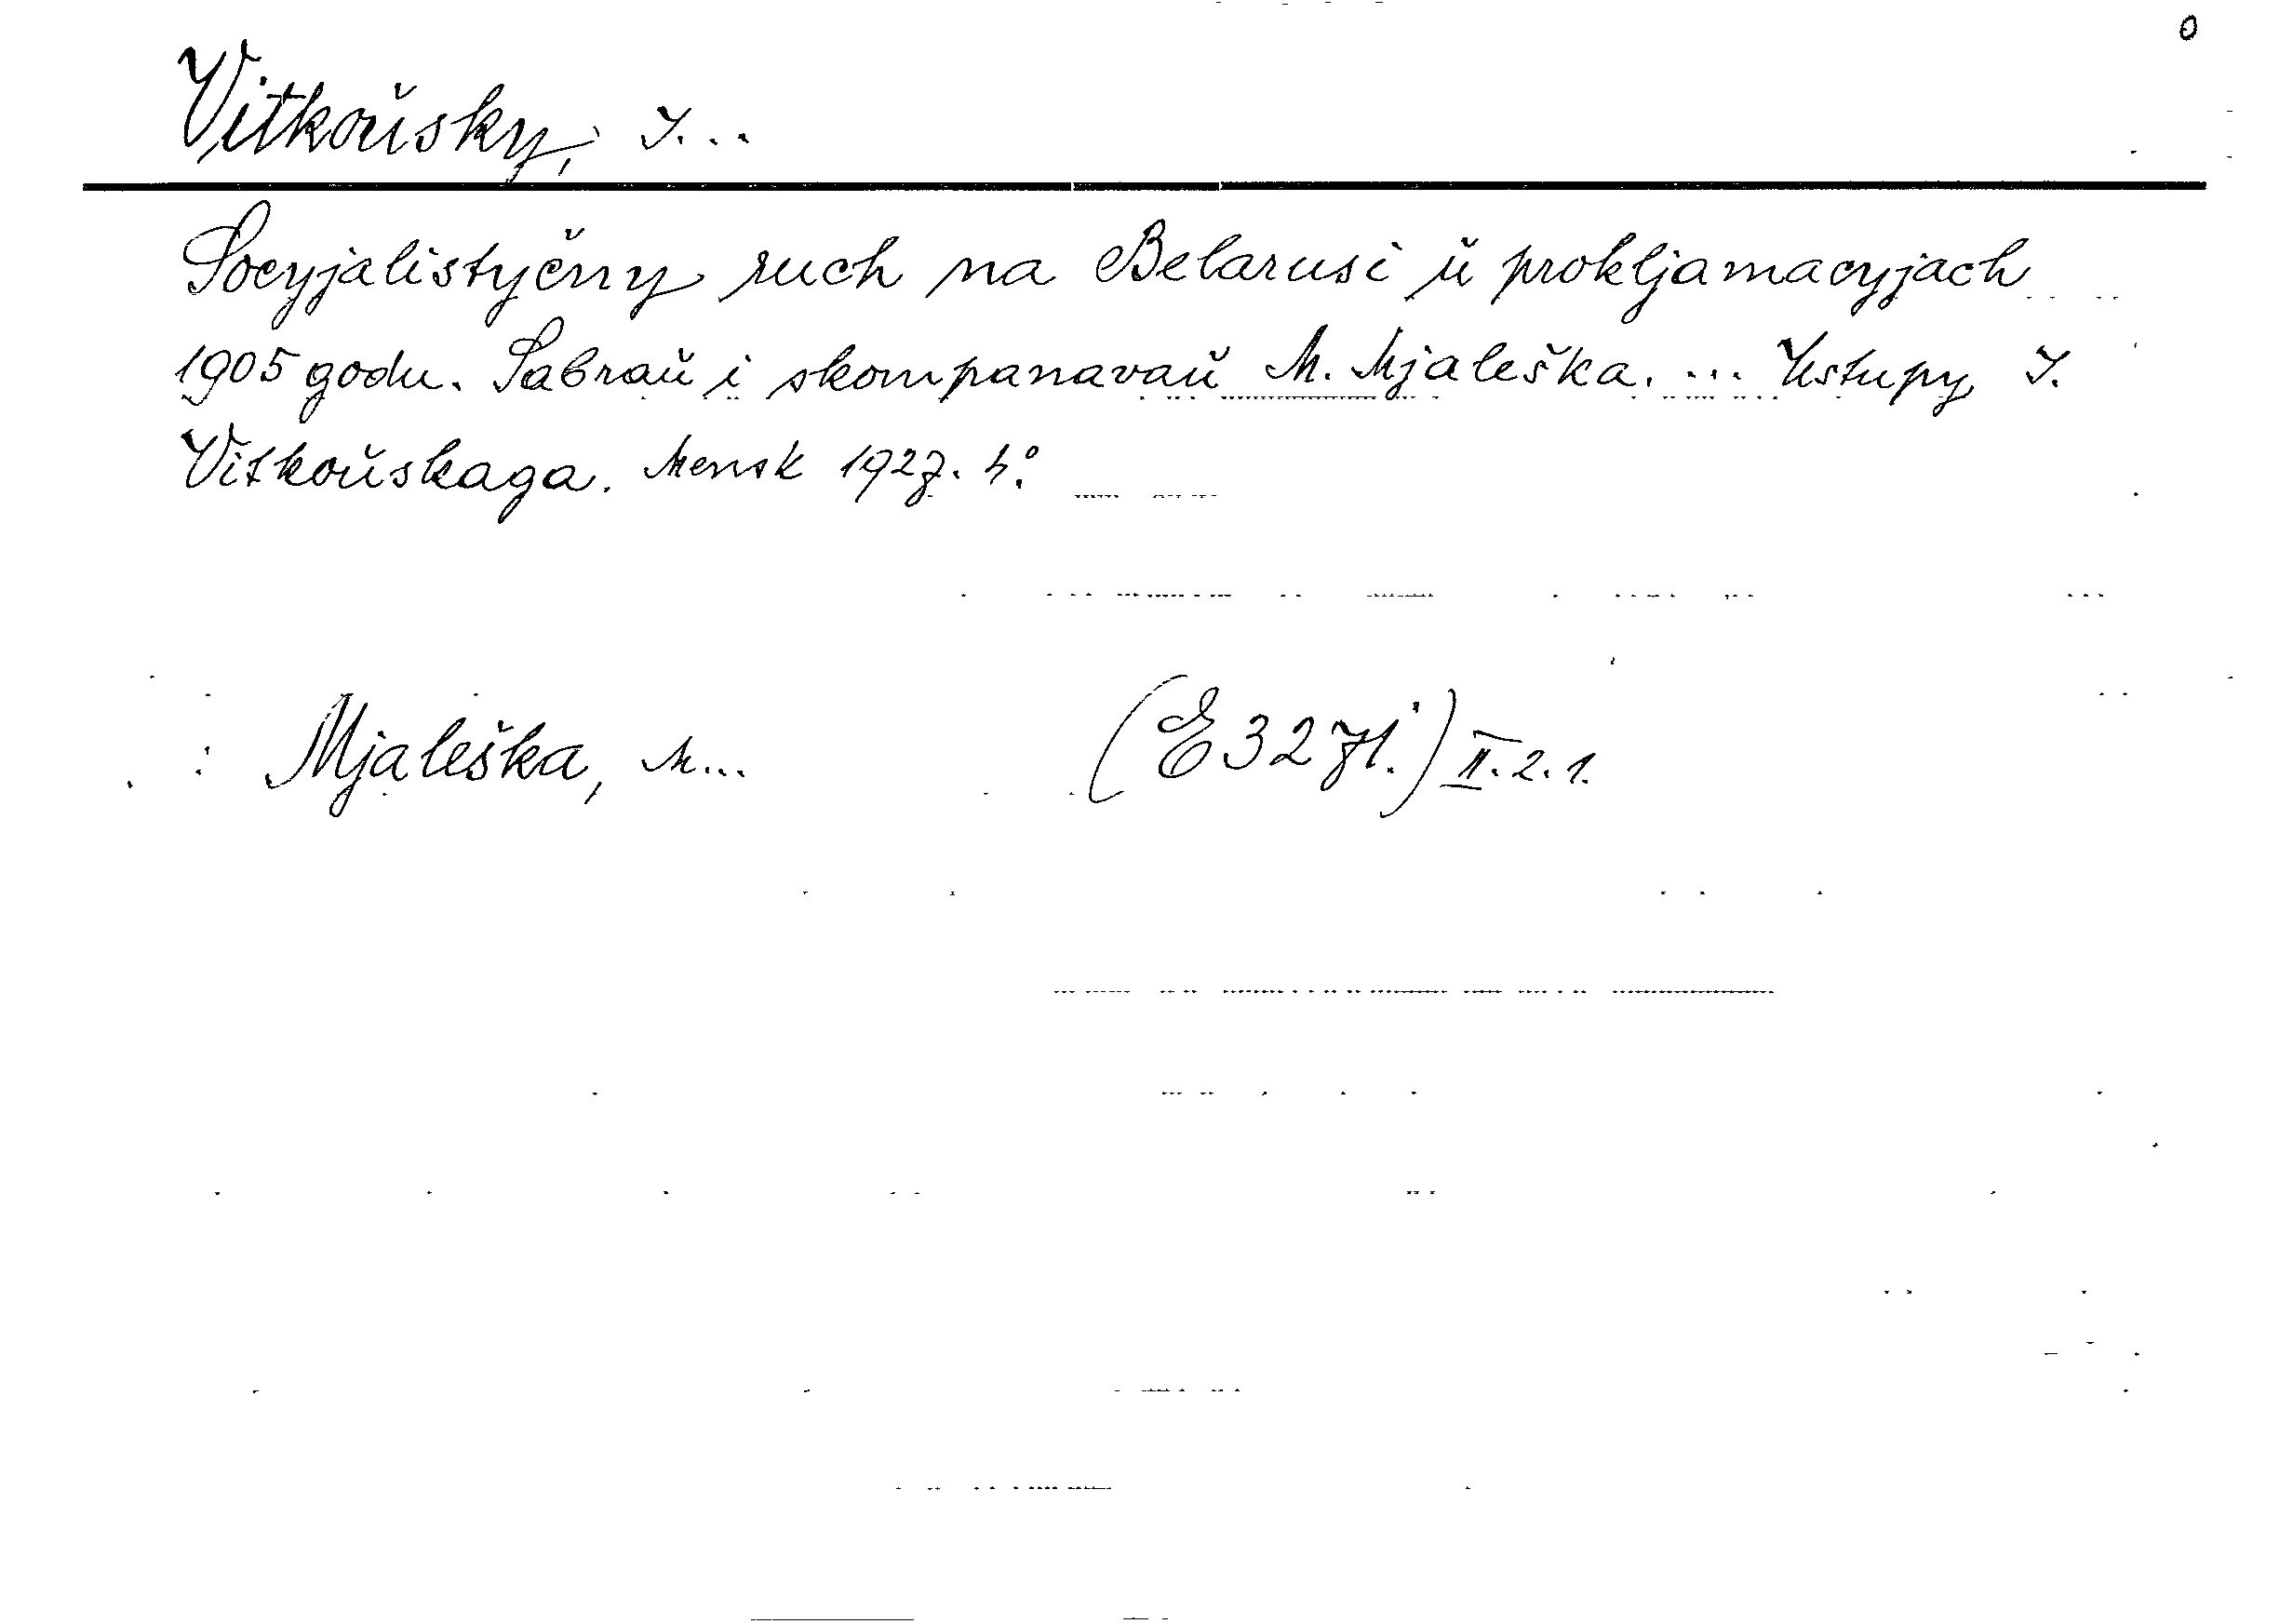 0
Vitkoŭsky, I...
Socyjalistyčny ruch na Belarusi ŭ prokljamacyjach
1905 godu. Sabraŭ i skompanavaŭ M. Mjaleška. ... Ustupy I.
Vitkoŭskaga. Mensk 1927. 4°.
Mjaleška, M... (E 327 1.) II. 2. 1.